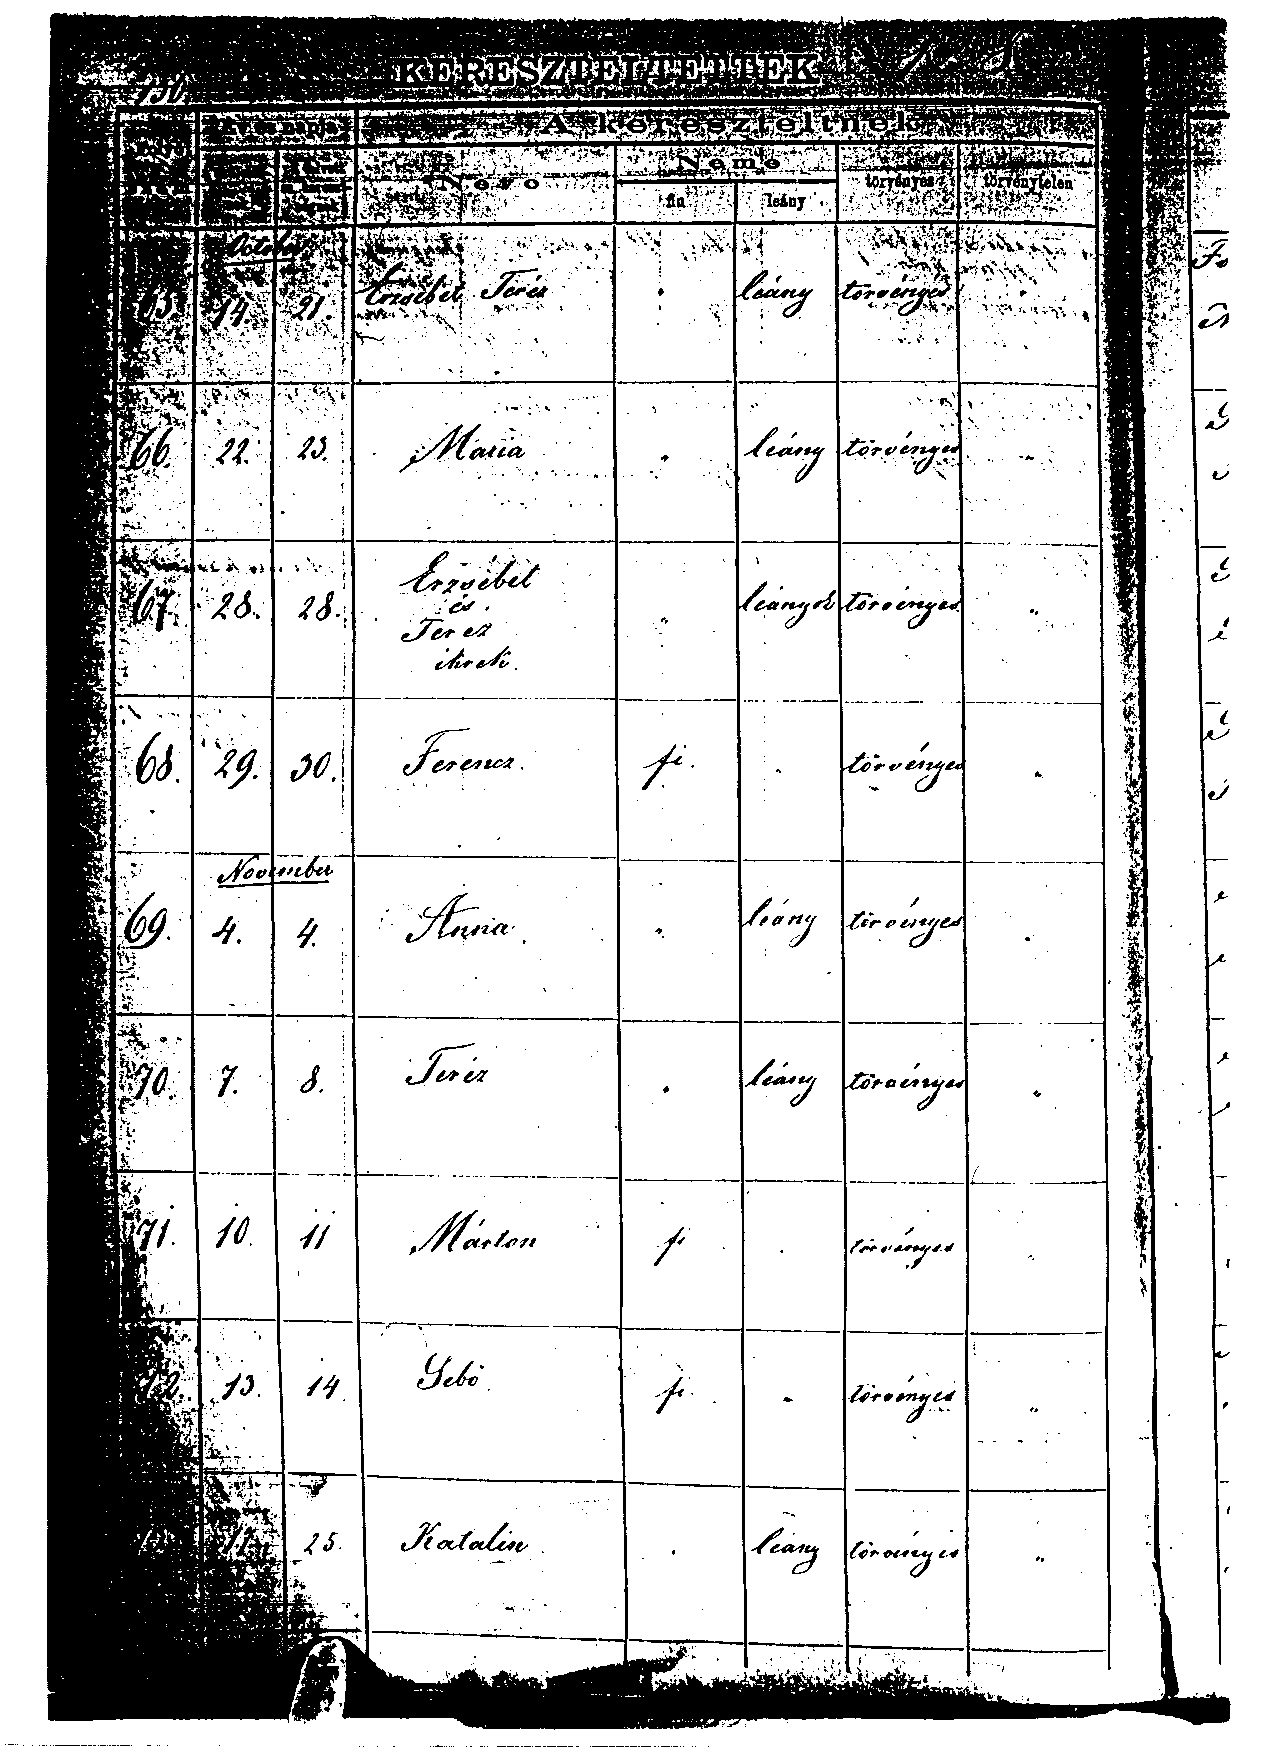 KERESZTELTETTEK
A kereszteltnek
Neme
Neve
fiu leány törvényes törvénytelen
October
65. 14. 21. Erzsébet Teréz " leány törvényes "
66. 22. 23. Mária " leány törvényes "
67. 28. 28. Erzsébet
és
Teréz
ikrek.
" leányok törvényes "
68. 29. 30. Ferencz. fi. " törvényes "
November
69. 4. 4. Anna " leány törvényes "
70. 7. 8. Teréz " leány törvényes "
71. 10. 11 Márton fi " törvényes
72. 13. 14 Sebö fi. " törvényes "
25. Katalin " leány törvényes "